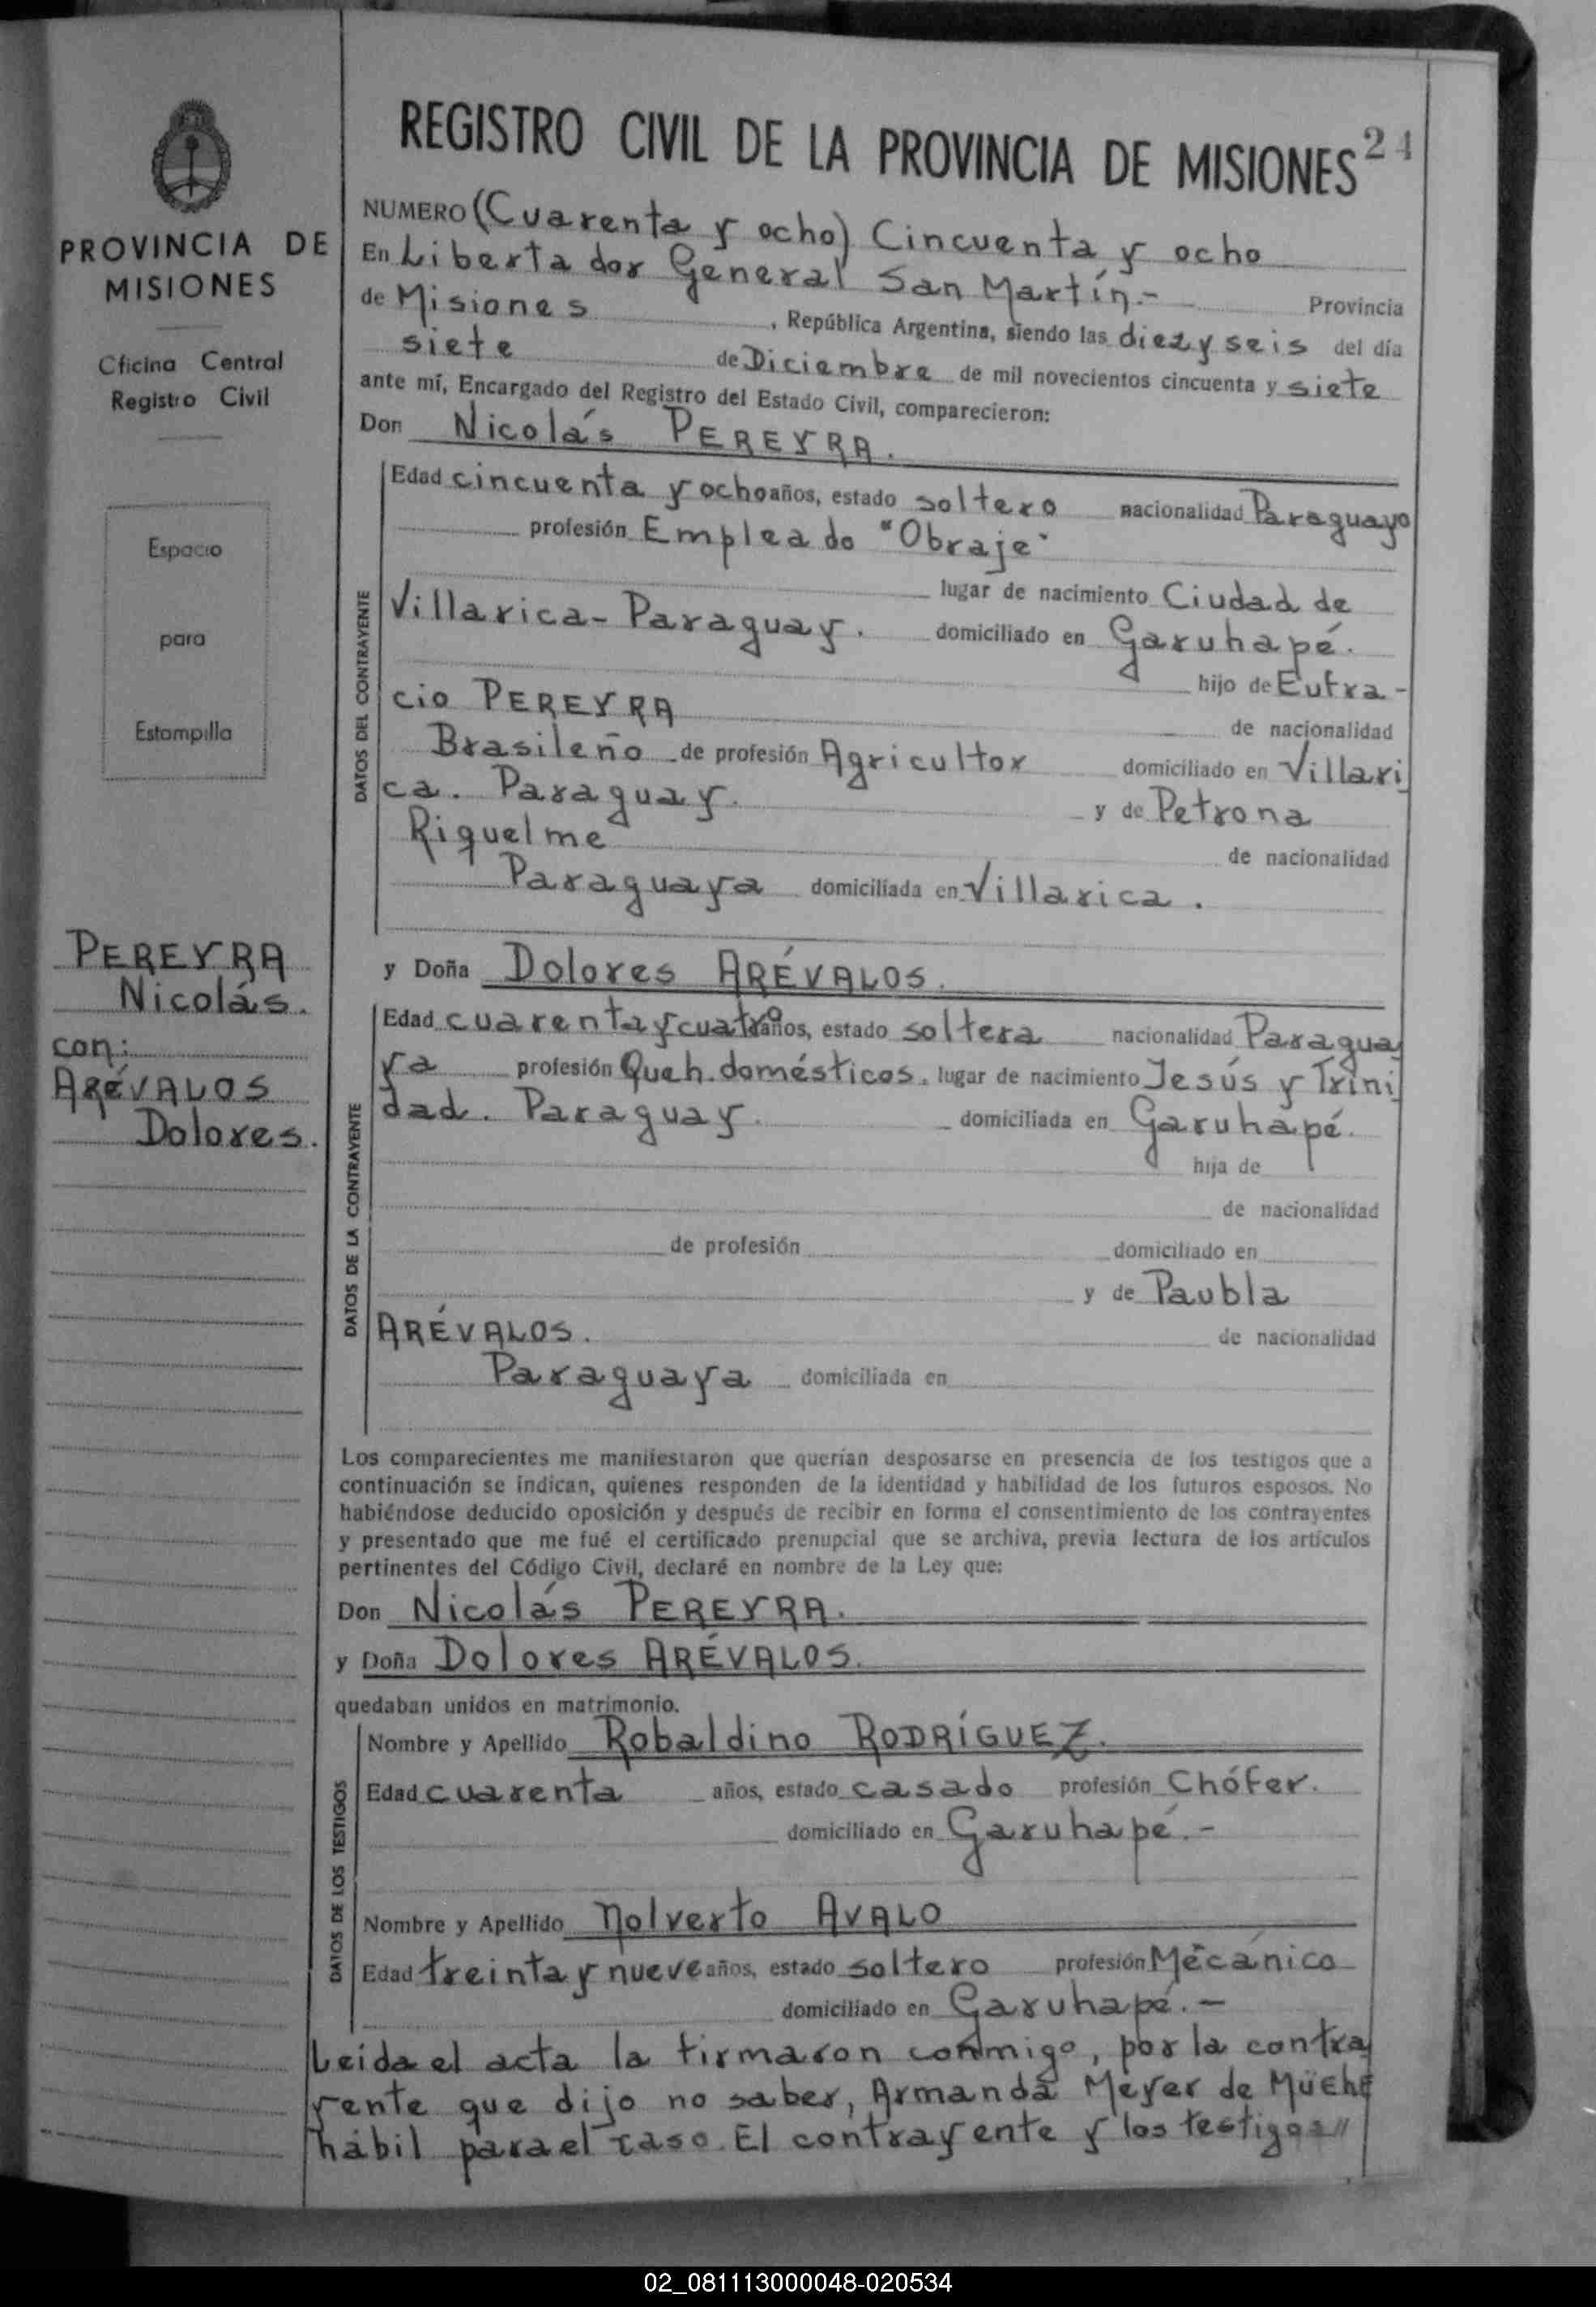 REGISTRO CIVIL DE LA PROVINCIA DE MISIONES 24
PROVINCIA DE
MISIONES
Oficina Central
Registro Civil
Espacio
para
Estampilla
PEREYRA
Nicolás.
con:
ARÉVALOS
Dolores.
NUMERO (Cuarenta y ocho) Cincuenta y ocho
En Libertador General San Martín.- Provincia
de Misiones, República Argentina, siendo las diez y seis del día
siete de Diciembre de mil novecientos cincuenta y siete
ante mí, Encargado del Registro del Estado Civil, comparecieron:
Don Nicolás PEREYRA.
DATOS DEL CONTRAYENTE
Edad cincuenta y ocho años, estado soltero nacionalidad Paraguayo
profesión Empleado "Obraje"
lugar de nacimiento Ciudad de
Villarica - Paraguay. domiciliado en Garuhapé.
hijo de Eufra-
cio PEREYRA
de nacionalidad
Brasileño de profesión Agricultor domiciliado en Villari
ca. Paraguay. y de Petrona
Riquelme
de nacionalidad
Paraguaya domiciliada en Villarica.
y Doña Dolores ARÉVALOS.
DATOS DE LA CONTRAYENTE
Edad cuarenta y cuatro años, estado soltera nacionalidad Paragua
ya profesión Queh. domésticos. lugar de nacimiento Jesús y Trini
dad. Paraguay. domiciliada en Garuhapé.
hija de
de nacionalidad
de profesión domiciliado en
y de Paubla
ARÉVALOS. de nacionalidad
Paraguaya domiciliada en
Los comparecientes me manifestaron que querían desposarse en presencia de los testigos que a
continuación se indican, quienes responden de la identidad y habilidad de los futuros esposos. No
habiéndose deducido oposición y después de recibir en forma el consentimiento de los contrayentes
y presentado que me fué el certificado prenupcial que se archiva, previa lectura de los artículos
pertinentes del Código Civil, declaré en nombre de la Ley que:
Don Nicolás PEREYRA.
y Doña Dolores ARÉVALOS.
quedaban unidos en matrimonio.
DATOS DE LOS TESTIGOS
Nombre y Apellido Robaldino RODRÍGUEZ.
Edad cuarenta años, estado casado profesión Chófer.
domiciliado en Garuhapé.-
Nombre y Apellido Nolverto AVALO
Edad treinta y nueve años, estado soltero profesión Mecánico
domiciliado en Garuhapé.-
Leída el acta la firmaron conmigo, por la contra
yente que dijo no saber, Armanda Meyer de
hábil para el caso. El contrayente y los testigos//
02_081113000048-020534